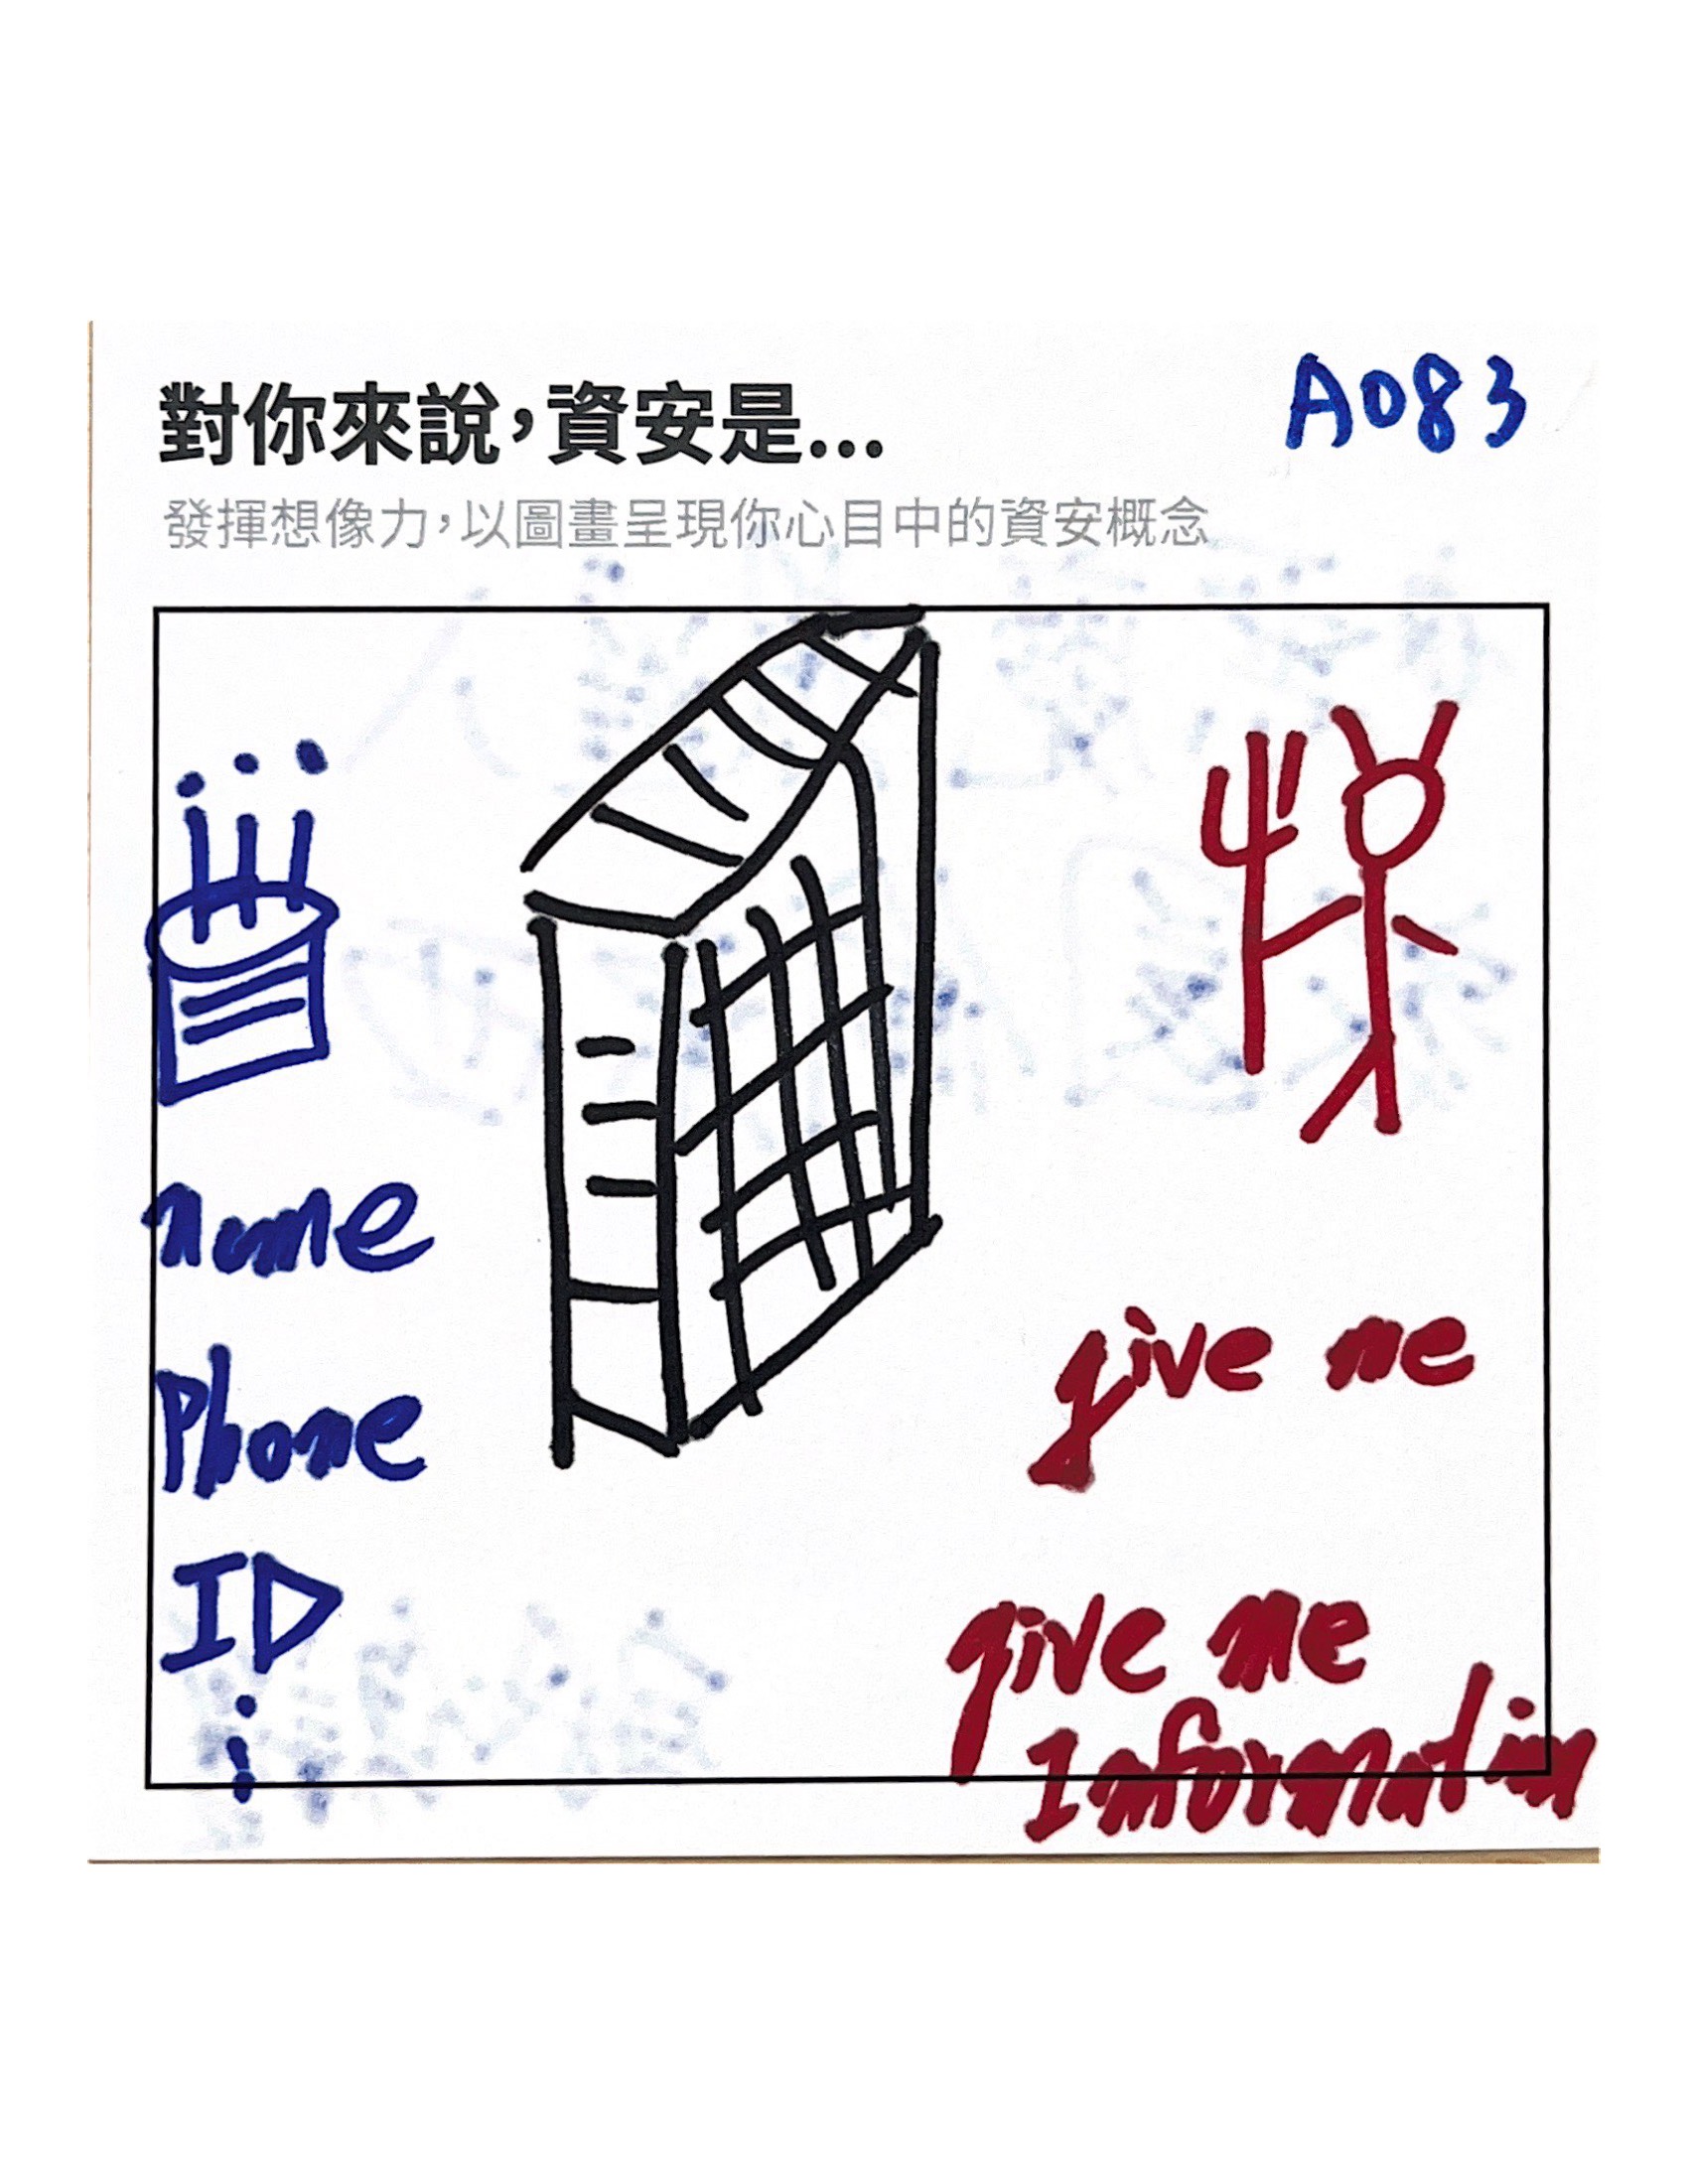 對你來說，資安是...
A083
發揮想像力，以圖畫呈現你心目中的資安概念
name
Phone
ID
give me
give me
Information